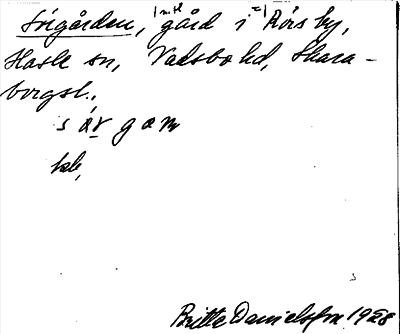 Srigården, gård i Rörs by,
Hasle sn, Vadsbo hd, Skara-
borgsl.,
sårgam
kk,
Britte Danielsson 1928